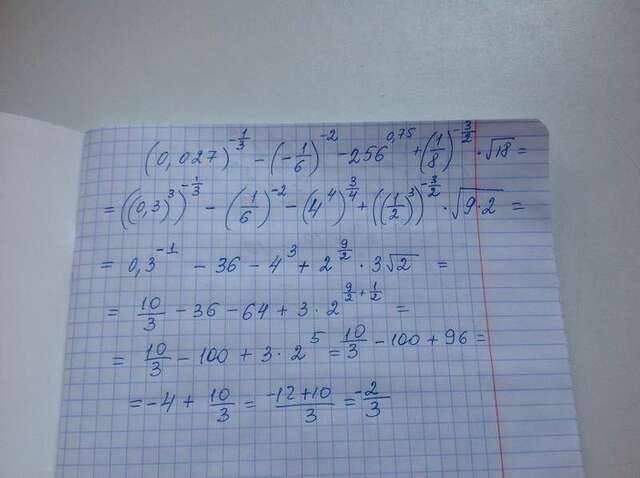 (0,027)^{-\frac{1}{3}} - (-\frac{1}{6})^{-2} - 256^{0,75} + (\frac{1}{8})^{-\frac{3}{2}} · √18 =
= ((0,3)^3)^{-\frac{1}{3}} - (\frac{1}{6})^{-2} - (4^4)^{\frac{3}{4}} + ((\frac{1}{2})^3)^{-\frac{3}{2}} · √9·2 =
= 0,3^{-1} - 36 - 4^3 + 2^{\frac{9}{2}} · 3√2 =
= \frac{10}{3} - 36 - 64 + 3 · 2^{\frac{9}{2}+\frac{1}{2}} =
= \frac{10}{3} - 100 + 3 · 2^5 = \frac{10}{3} - 100 + 96 =
= -4 + \frac{10}{3} = \frac{-12+10}{3} = \frac{-2}{3}